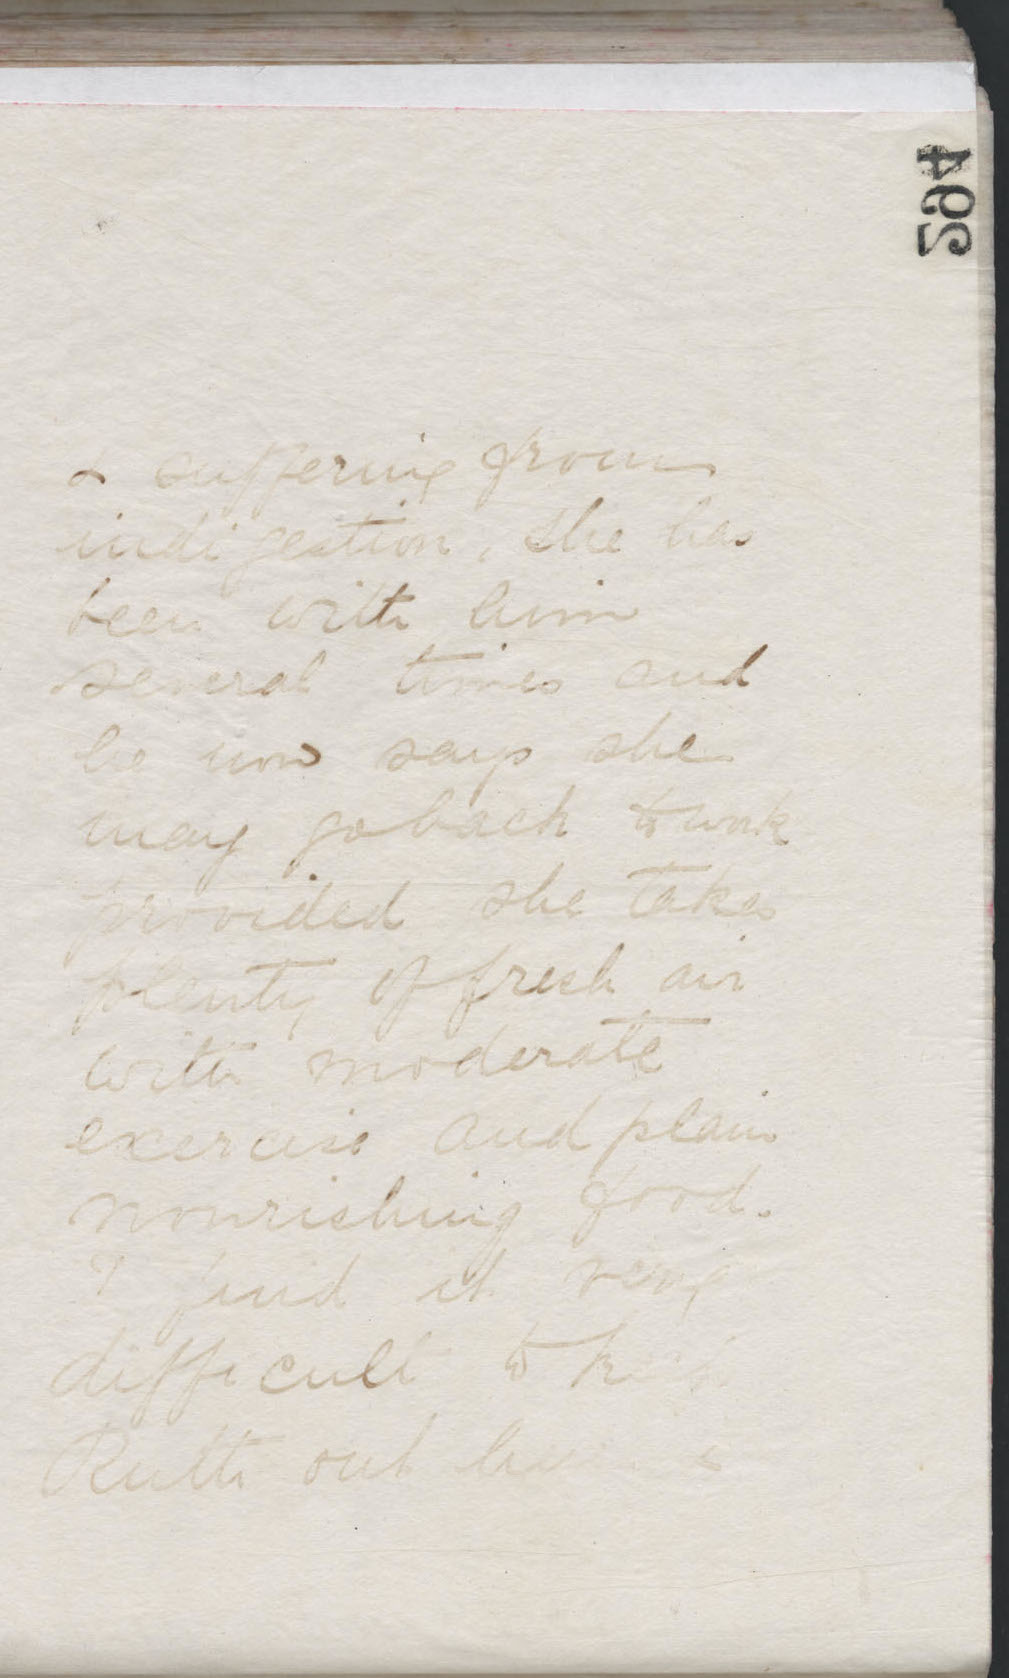 497
& suffering from
indigestion, she has
been with him
several times and
he now says she
may go back to work
provided she takes
plenty of fresh air
with moderate
exercise and plain
nourishing food.
I find it very
difficult to
Ruth out